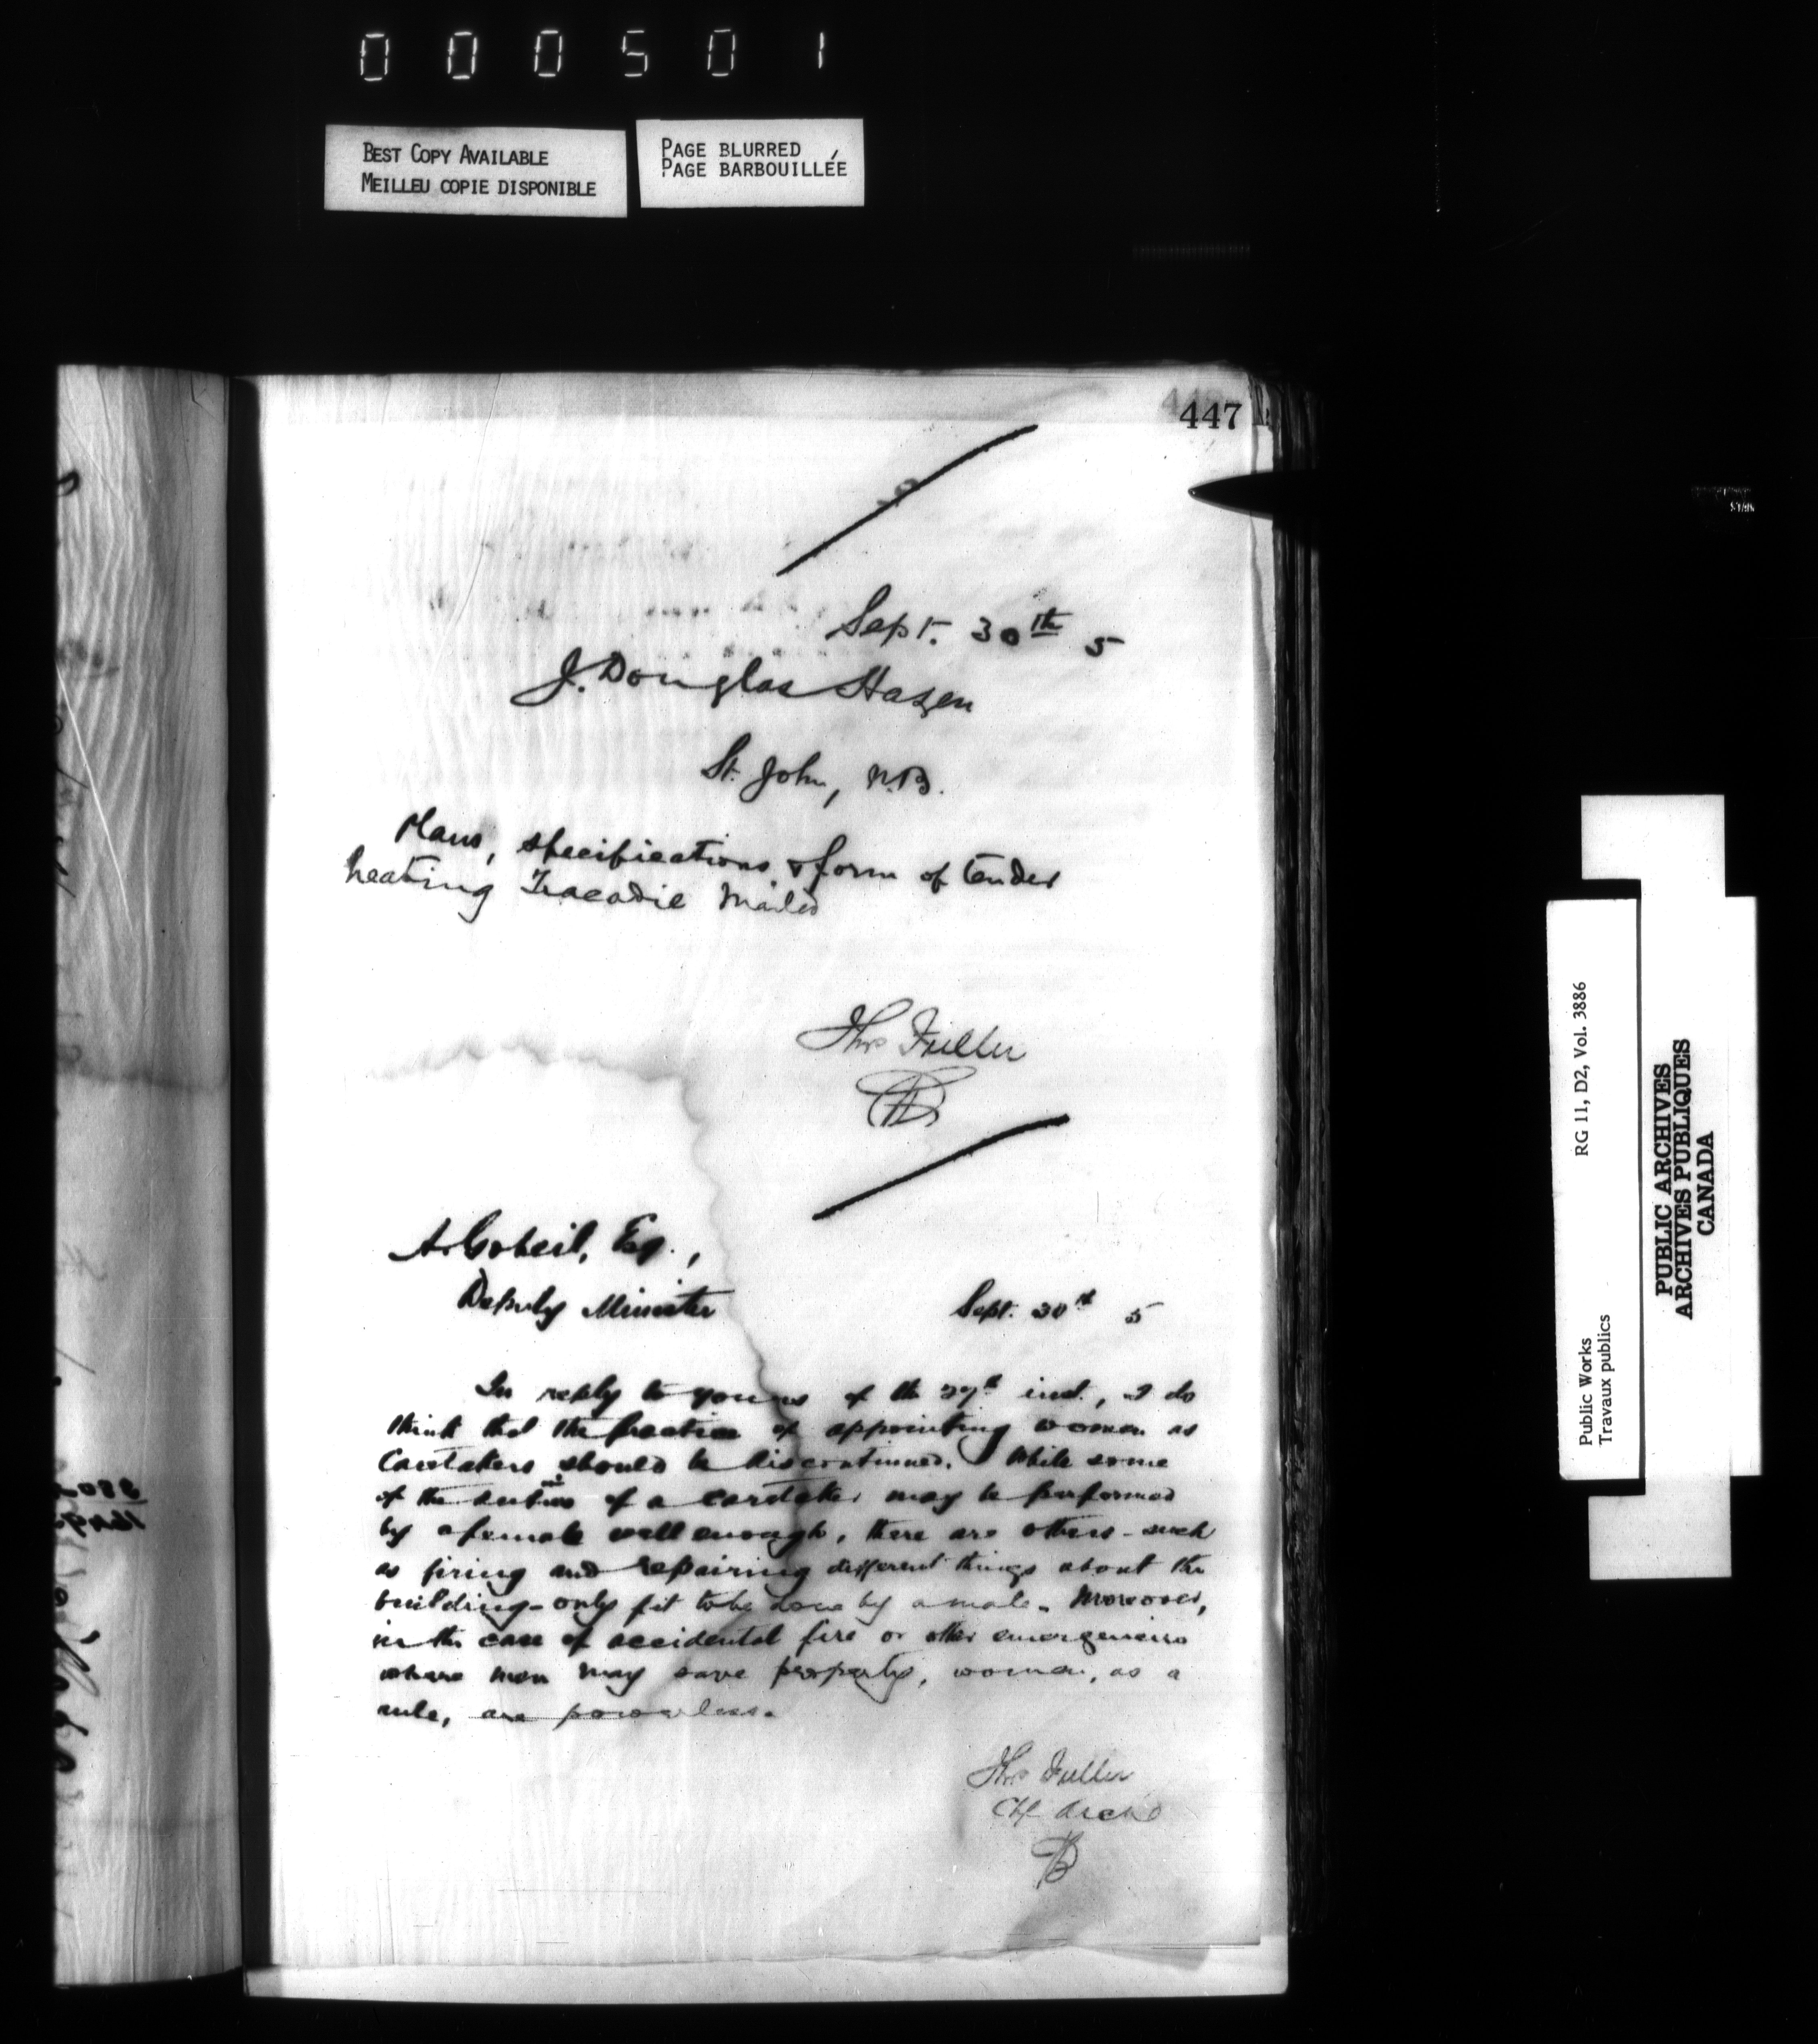 000501
BEST COPY AVAILABLE
MEILLEU COPIE DISPONIBLE
PAGE BLURRED
PAGE BARBOUILLÉE
447
Sept. 30th 5
J. Douglas Hazen
St. John, N.B.
Plans, specifications & form of tender
heating Tracadie mailed
Thos Fuller
A. Gobeil, Esq.,
Deputy Minister
Sept. 30th 5
In reply to yours of the 27th inst., I do
think that the practice of appointing women as
Caretakers should be discontinued. While some
of the duties of a caretaker may be performed
by a female well enough, there are others - such
as firing and repairing different things about the
building - only fit to be done by a male. Moreover,
in the case of accidental fire or other emergencies
where men may save property, women, as a
rule, are powerless.
Thos Fuller
Ch Archt
Public Works
Travaux publics
RG 11, D2, Vol. 3886
PUBLIC ARCHIVES
ARCHIVES PUBLIQUES
CANADA